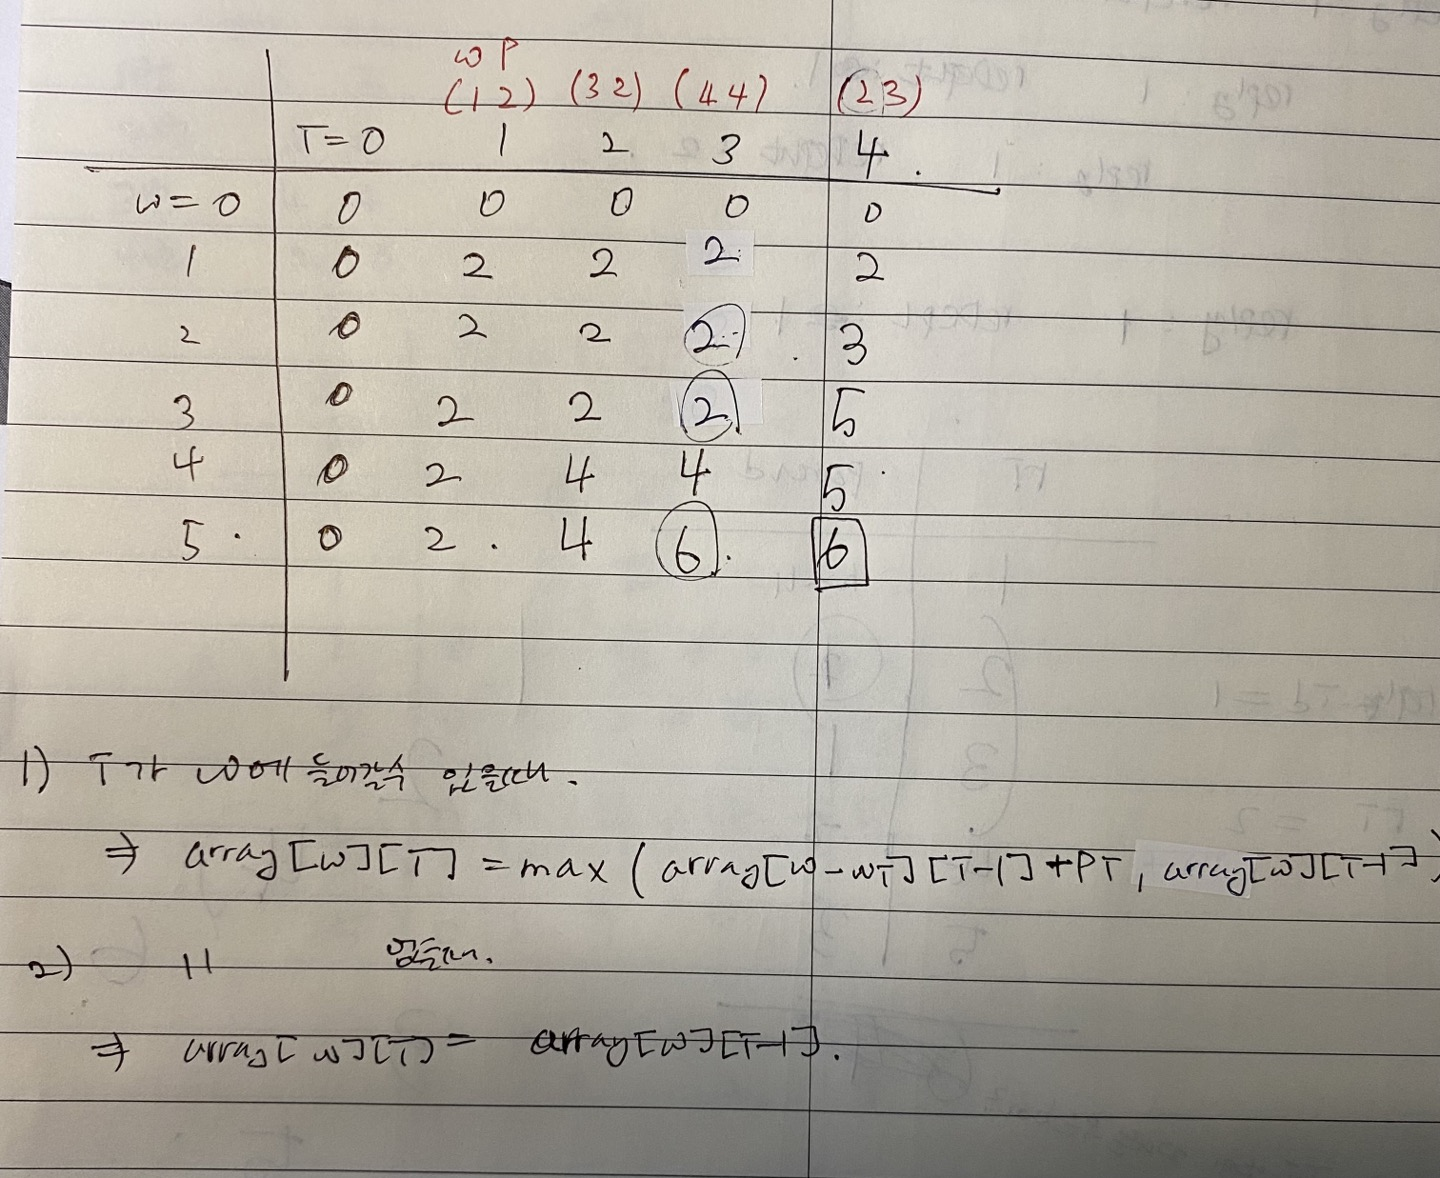 w P
(1 2) (3 2) (4 4) (2 3)
T=0 1 2 3 4.
w=0 0 0 0 0 0
1 0 2 2 2 2
2 0 2 2 2 3
3 0 2 2 2 5
4 0 2 4 4 5
5 0 2 4 6 6
1) T가 w에 들어갈수 있을때.
⇒ array[w][T] = max ( array[w-wT][T-1]+PT, array[w][T-1])
2) 〃 없을때.
⇒ array[w][T] = array[w][T-1].